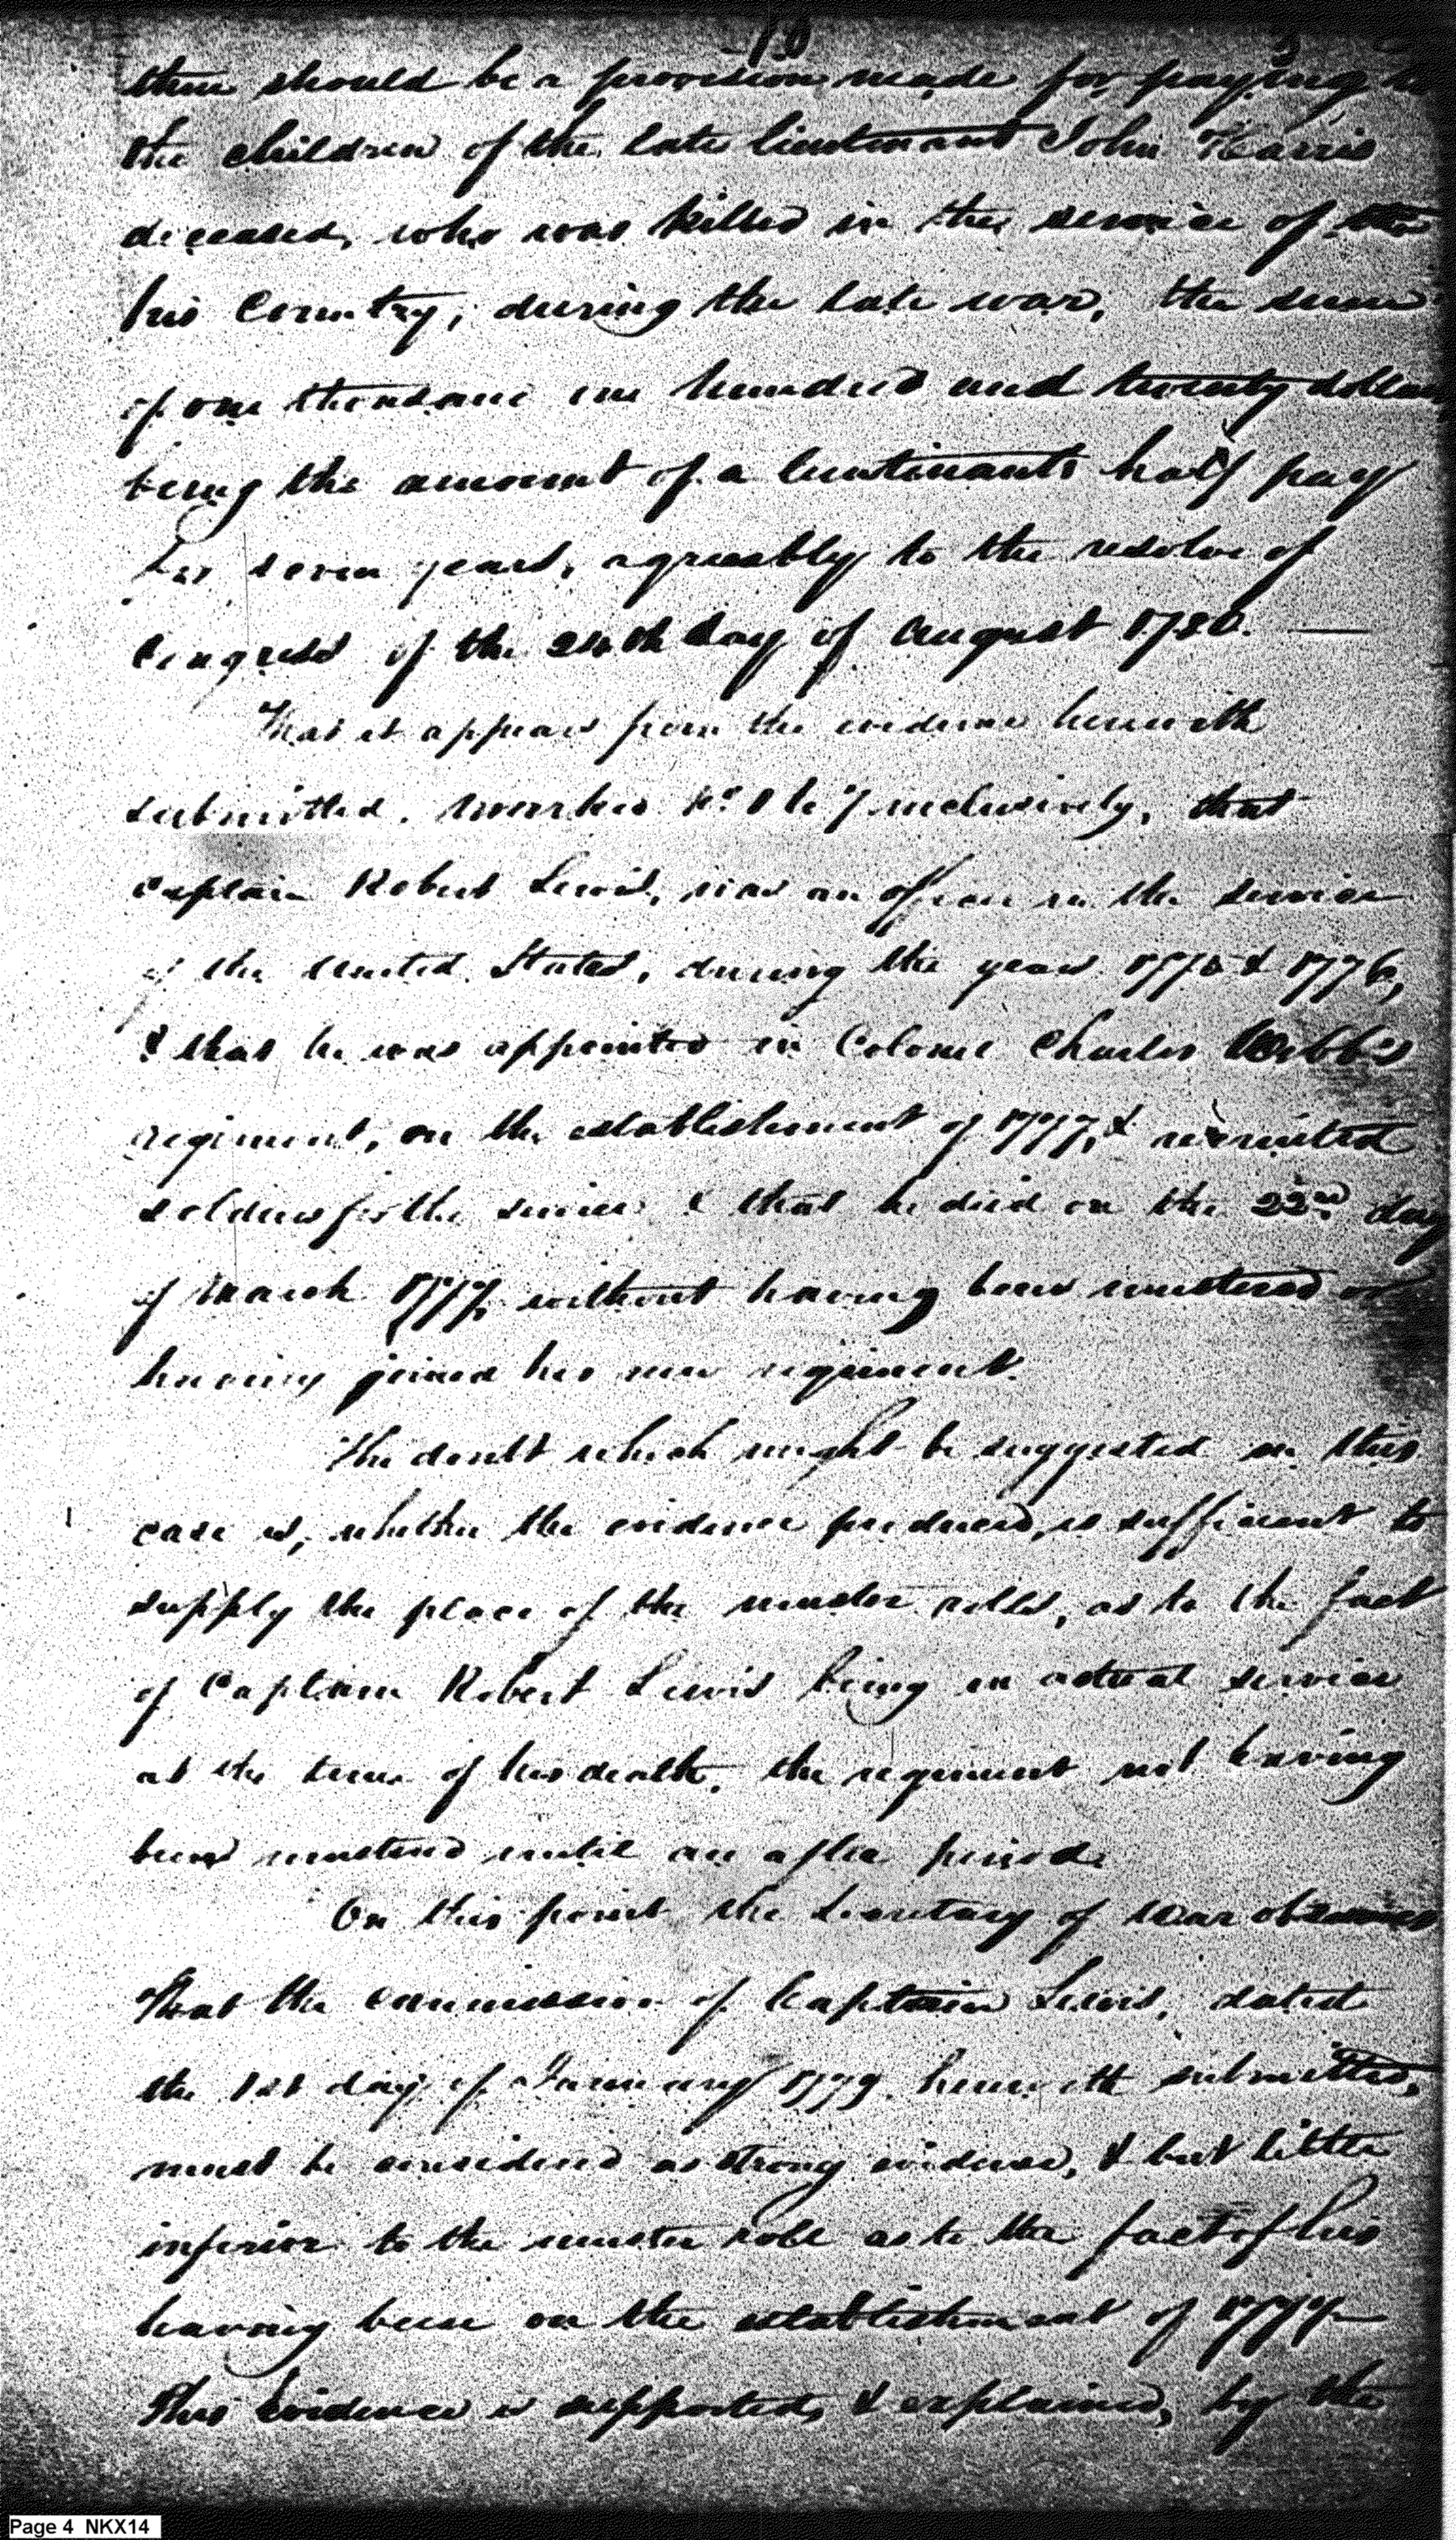 10
there should be a provision made for paying to
the children of the late lieutenant John Harris
deceased, who was killed in the service of
his Country, during the late war, the sum
of one thousand one hundred and twenty dollars
being the amount of a lieutenants half pay
for seven years, agreeably to the resolve of
Congress of the 24th day of August 1780. —
That it appears from the evidence herewith
submitted, marked No 1 to 7 inclusively, that
Captain Robert Lewis, was an officer in the service
of the United States, during the years 1775 & 1776,
& that he was appointed in Colonel Charles Webb's
regiment, on the establishment of 1777, & recruited
soldiers for the service & that he died on the 22nd day
of March 1777, without having been mustered or
having joined his new regiment.
The doubt which might be suggested in this
case is, whether the evidence produced, is sufficient to
supply the place of the muster rolls, as to the fact
of Captain Robert Lewis being in actual service
at the time of his death, the regiment not having
been mustered until an after period.
On this point the Secretary of War observes
That the commission of Captain Lewis, dated
the 1st day of January 1777 herewith submitted,
must be considered as strong evidence, & but little
inferior to the muster role as to the fact of his
having been on the establishment of 1777—
This evidence is supported, & explained, by the
Page 4 NKX14